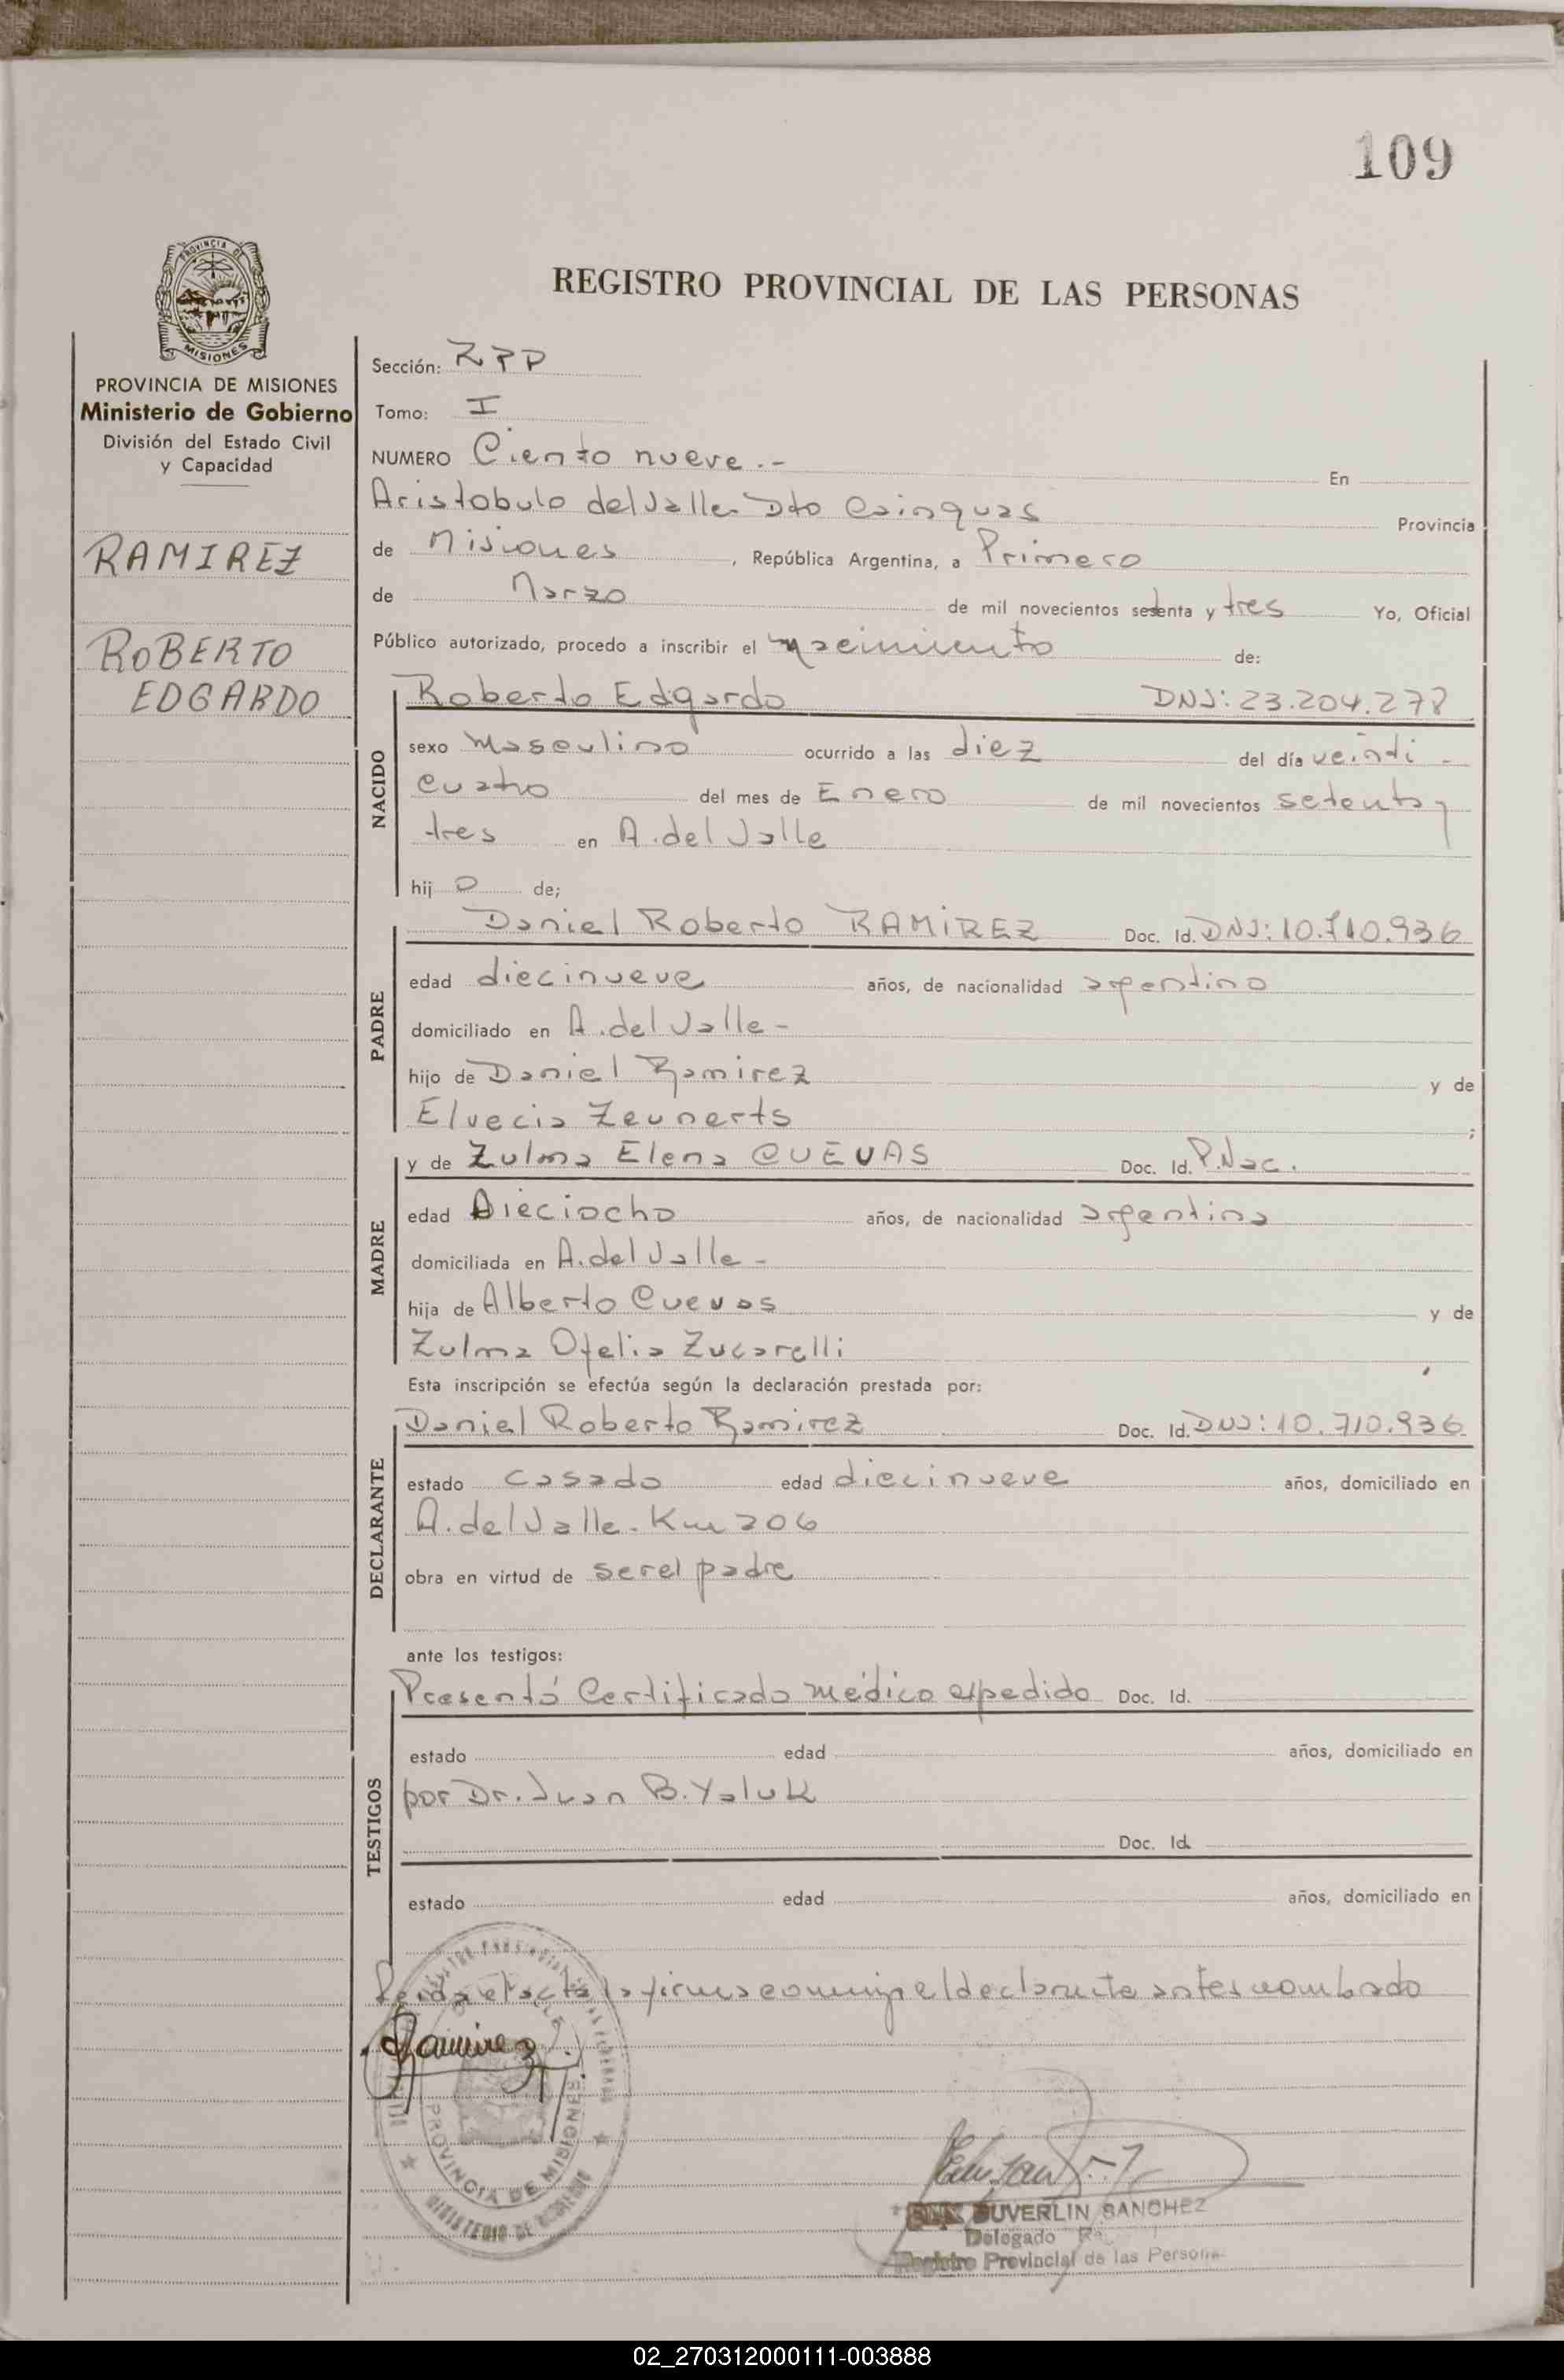 109
PROVINCIA DE
MISIONES
PROVINCIA DE MISIONES
Ministerio de Gobierno
División del Estado Civil
y Capacidad
RAMIREZ
ROBERTO
EDGARDO
REGISTRO PROVINCIAL DE LAS PERSONAS
Sección: RPP
Tomo: I
NUMERO Ciento nueve.- En
Aristobulo del Valle Dto Cainguas Provincia
de Misiones, República Argentina, a Primero
de Marzo de mil novecientos setenta y tres Yo, Oficial
Público autorizado, procedo a inscribir el nacimiento de:
NACIDO
Roberto Edgardo DNI: 23.204.278
sexo Masculino ocurrido a las diez del día veinti-
cuatro del mes de Enero de mil novecientos setenta y
tres en A. del Valle
hij o de;
PADRE
Daniel Roberto RAMIREZ Doc. Id. DNI: 10.710.936
edad diecinueve años, de nacionalidad argentino
domiciliado en A. del Valle-
hijo de Daniel Ramirez y de
Elvecia Zeunerts ;
MADRE
y de Zulma Elena CUEVAS Doc. Id. P.Nac.
edad Dieciocho años, de nacionalidad argentina
domiciliada en A. del Valle-
hija de Alberto Cuevas y de
Zulma Ofelia Zucarelli
Esta inscripción se efectúa según la declaración prestada por:
DECLARANTE
Daniel Roberto Ramirez Doc. Id. DNI: 10.710.936
estado casado edad diecinueve años, domiciliado en
A. del Valle. Km 206
obra en virtud de ser el padre
ante los testigos:
TESTIGOS
Presentó Certificado médico expedido Doc. Id.
estado edad años, domiciliado en
por Dr. Juan B. Yaluk
Doc. Id.
estado edad años, domiciliado en
Leida el acta la firma conmigo el declarante antes nombrado
Ramirez
PROVINCIA DE MISIONES
MINISTERIO DE GOBIERNO
DUVERLIN SANCHEZ
Delegado
Registro Provincial de las Personas
02_270312000111-003888